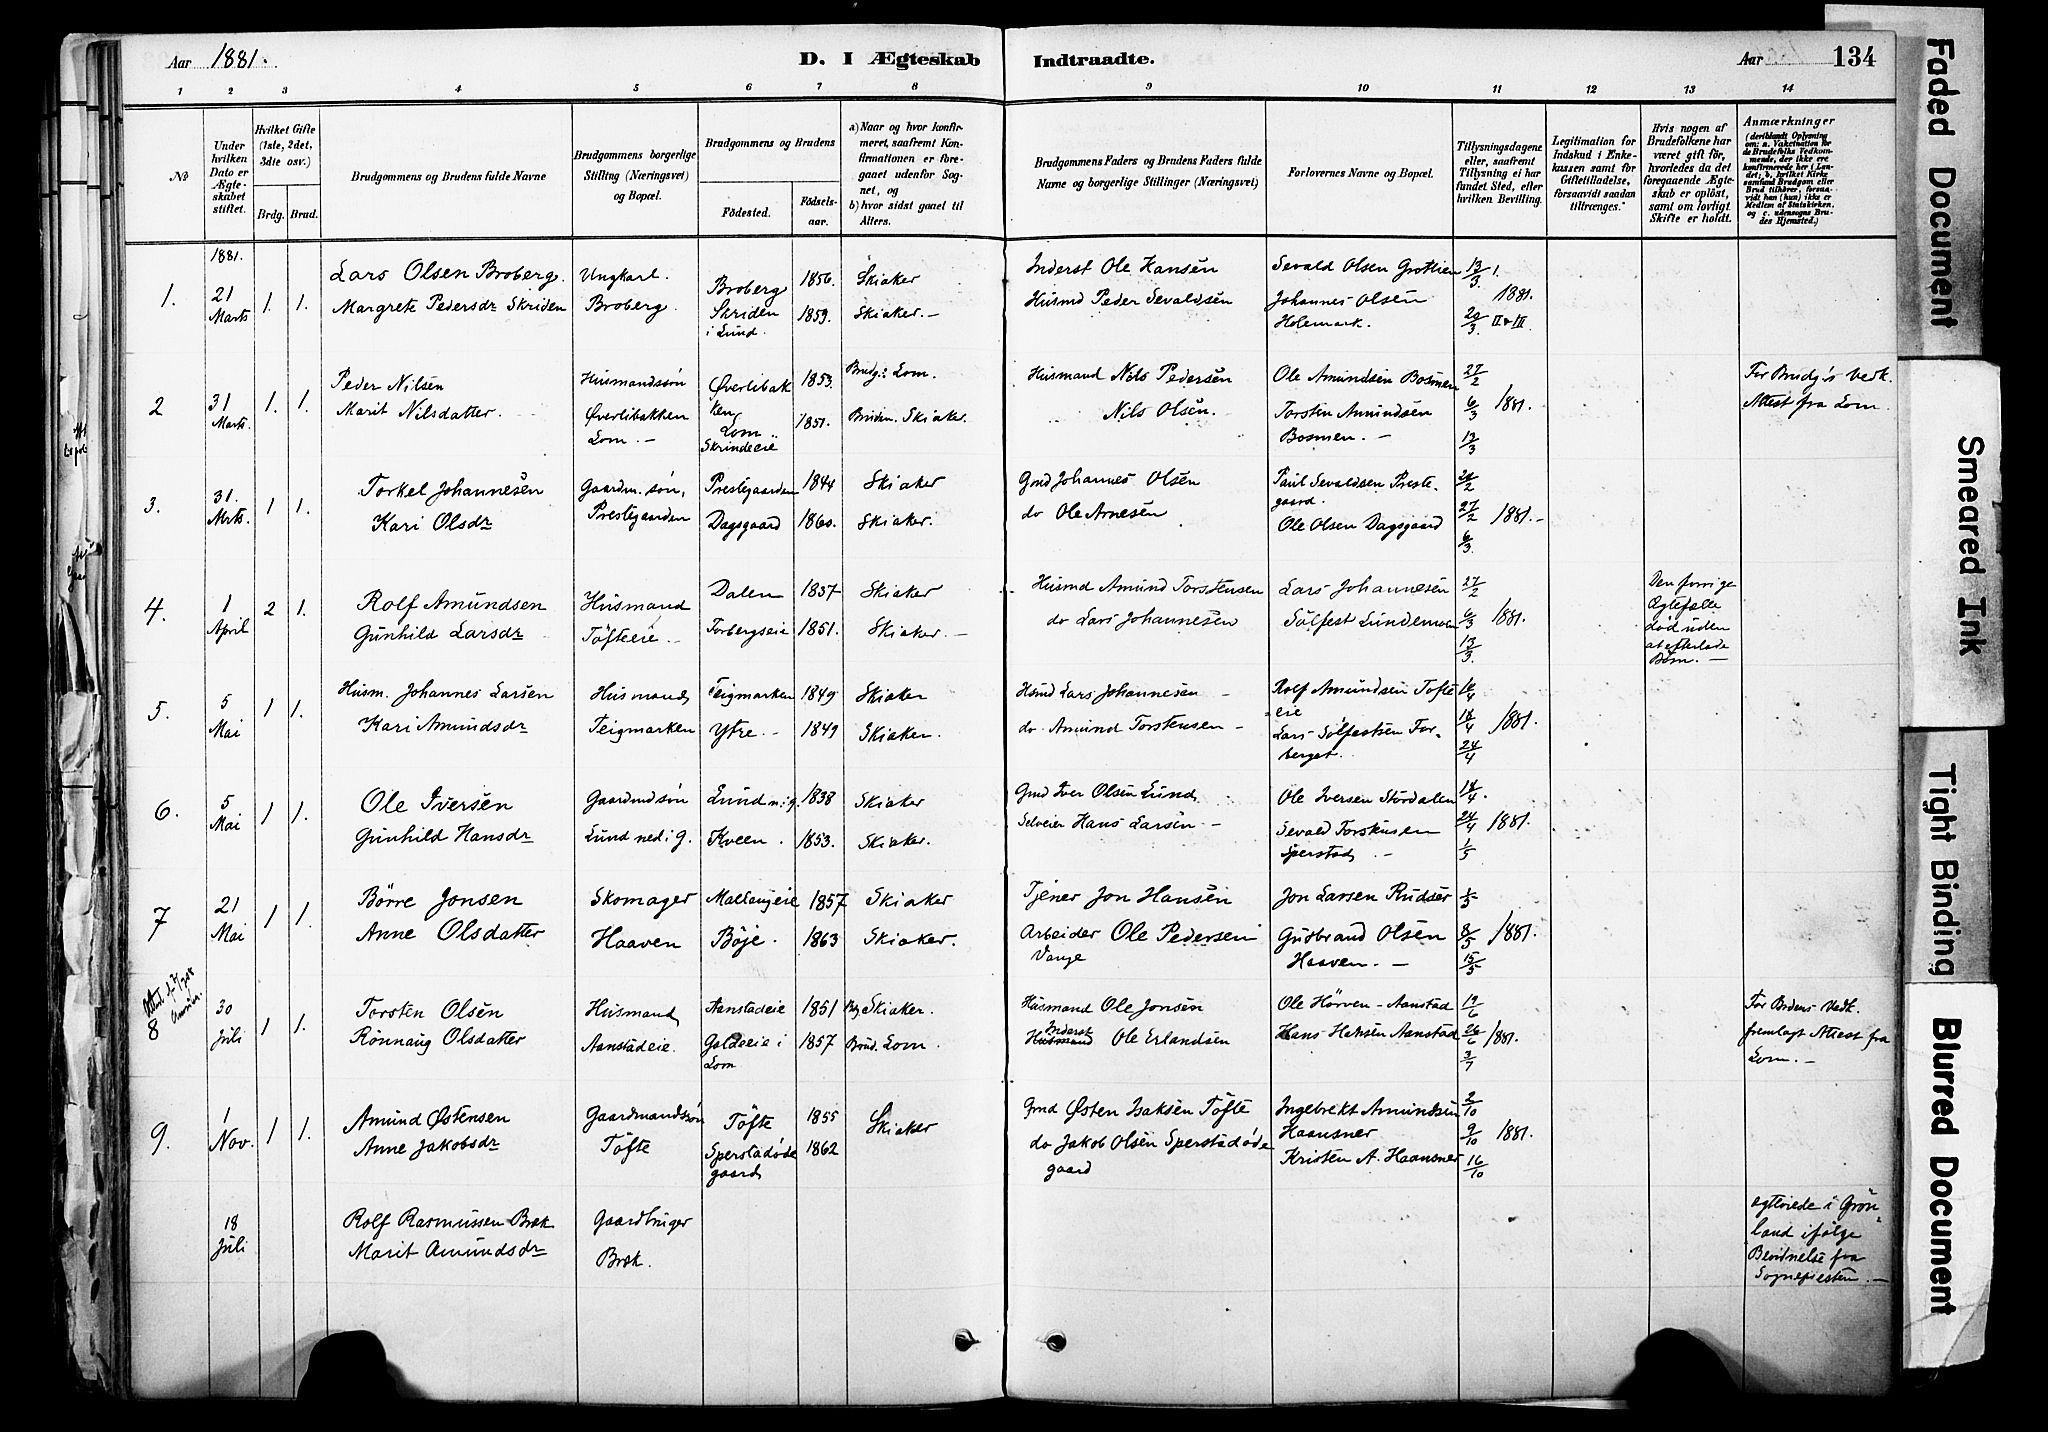 Aar 1881.
D. I Ægteskab Indtraadte.
Aar 134
1 2 3 4 5 6 7 8 9 10 11 12 13 14
No
Under hvilken Dato er Ægteskabet stiftet.
Hvilket Gifte (1ste, 2det, 3die osv.)
Brdg. Brud.
Brudgommens og Brudens fulde Navne
Brudgommens borgerlige Stilling (Næringsvei) og Bopæl.
Brudgommens og Brudens
Födested. Födselsaar.
a) Naar og hvor konfirmeret, saafremt Konfirmationen er foregaaet udenfor Sognet, og
b) hvor sidst gaaet til Alters.
Brudgommens Faders og Brudens Faders fulde Navne og borgerlige Stillinger (Næringsvei)
Forlovernes Navne og Bopæl.
Tillysningsdagene eller, saafremt Tillysning ei har fundet Sted, efter hvilken Bevilling.
Legitimation for Indskud i Enkekassen samt for Giftetilladelse, forsaavidt saadan tiltrænges.
Hvis nogen af Brudefolkene har været gift för, hvorledes da det foregaaende Ægteskab er oplöst, samt om lovligt Skifte er holdt.
Anmærkninger
(deriblandt Oplysning om: a. Vakcination for de Brudefolks Vedkommende, der ikke ere konfirmerede her i Landet; b. hvilket Kirkesamfund Brudgom eller Brud tilhörer, forsaavidt han (hun) ikke er Medlem af Statskirken, og c. udensogns Brudes Hjemsted.)
1881.
1. 21 Marts 1. 1.
Lars Olsen Broberg. Ungkarl. Broberg 1856. Skiaker
Margrete Pedersdr Skriden Broberg. Skriden i Lund. 1859. Skiaker.-
Inderst Ole Hansen Sevald Olsen Grottien 13/3 I.
Husmd Peder Sevaldsen Johannes Olsen Holemark. 1881. 20/3 II & III
2 31 Marts. 1. 1.
Peder Nilsen Husmandssøn Øverlibakken Lom 1853. Brudg: Lom.
Marit Nilsdatter. Øverlibakken Lom.- Skrindeeie 1851. Bruden. Skiaker.
Husmand Nils Pedersen Ole Amundsen Bosmen 27/2
Nils Olsen. Torsten Amundsen Bosmen.- 6/3 1881. 13/3
For Brudg's Vedk. Attest fra Lom.
3. 31. Mrts. 1 1.
Torkel Johannesen Gaardm. søn, Prestegaarden 1844 Skiaker
Kari Olsdr Prestegaarden Dagsgaard 1860. Skiaker.
Gmd Johannes Olsen Paul Sevaldsen Prestegaard. 20/2
do Ole Arnesen Ole Olsen Dagsgaard 27/2 1881.- 6/3
4. 1 April 2 1.
Rolf Amundsen Husmand Dalen 1837 Skiaker
Gunhild Larsdr Töfteeie.- Forbergseie 1851. Skiaker.-
Husmd Amund Torstensen Lars Johannesen 27/2
do Lars Johannesen Sölfest Lundemoen 6/3 1881. 13/3.
Den forrige Ægtefælle död uden at efterlade Börn.-
5. 5 Mai 1 1.
Husm. Johannes Larsen Husmand Teigmarken 1849 Skiaker
Kari Amundsdr Teigmarken Ytre.- 1849 Skiaker.
Hsmd Lars Johannesen - Rolf Amundsen Tofteeie 10/4
do. Amund Torstensen - Lars Sölfestsen Forberget. 18/4 1881. 24/4
6. 5 Mai 1 1.
Ole Iversen Gaardmdsøn Lund n. i g. 1838 Skiaker
Gunhild Hansdr Lund ned i g. Kveen. 1853. Skiaker.
Gmd Iver Olsen Lund Ole Iversen Stordalen 14/4.
Selveier Hans Larsen - Sevald Torstensen Sperstad.- 24/4 1881. 1/5
7 21 Mai 1 1.
Börre Jonsen Skomager Maltangeie 1857 Skiaker
Anne Olsdatter Haaven Böje. 1863 Skiaker.
Tjener Jon Hansen Jon Larsen Rudser 1/5
Arbeider Ole Pedersen Vange Gudbrand Olsen Haaven.- 8/5 1881. 15/5
8 30 Juli 1 1.
Torsten Olsen Husmand Aanstadeie 1851 Bg. Skiaker.
Rönnaug Olsdatter Aanstadeie. Galdeeie i Lom 1857 Brud. Lom.
Husmand Ole Jonsen Ole Hörven - Aanstad 19/6
Husmand Inderst Ole Erlandsen Hans Hansen Aanstad 26/6 1881. 3/7
For Brdens Vedk. fremlagt Attest fra Lom.-
9. 1 Nov. 1 1.
Amund Østensen Gaardmandssön Töfte 1855 Skiaker
Anne Jakobsdr Töfte Sperstadödegaard 1862
Gmd Østen Isaksen Töfte Ingebrekt Amundsen Haansner 2/10
do Jakob Olsen Sperstadödegaard Kristen A. Haansner 9/10 1881. 16/10
18 Juli
Rolf Rasmussen Bræk Gaardbruger
Marit Amundsdr Bræk.
egteviede i Grönland ifölge Bevidnelse fra Sognepresten.-
Faded Document
Smeared Ink
Tight Binding
Blurred Document